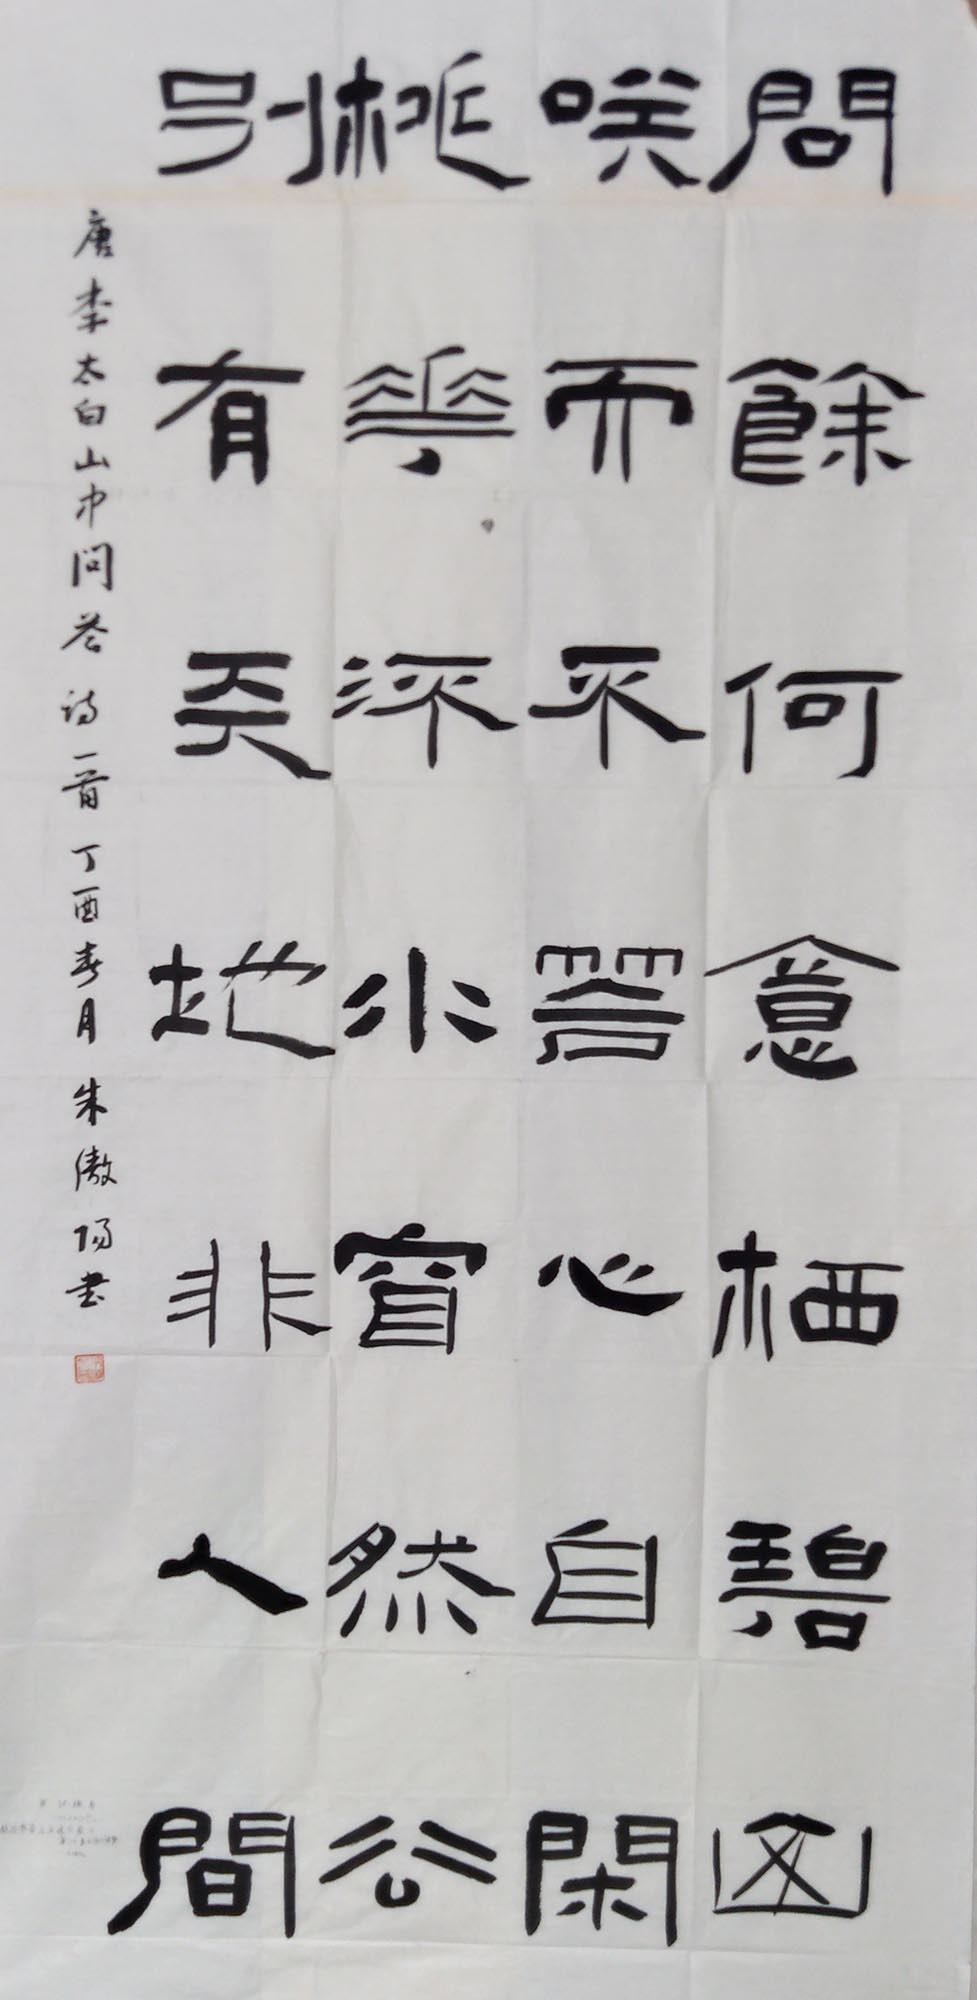 問餘何意栖碧山
咲而不答心自閑
桃華流水窅然去
別有天地非人間
唐李太白山中问答诗一首丁酉春月朱傲阳書